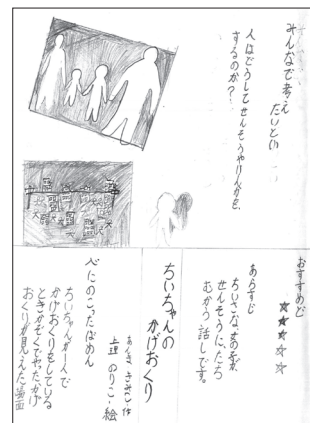 みんなで考え
たいとい
人はどうしてせんそうやけんかを、
するのか？
おすすめど
★★★★★
あらすじ
ちいさな女の子が、
せんそうに、たち
むかう 話しです。
ちいちゃんの
かげおくり
あまん きみこ・作
上野 のりこ・絵
心にのこったばめん
ちいちゃんが一人で
かげおくりをしている
ときかぞくでやったかげ
おくりが見えた場面